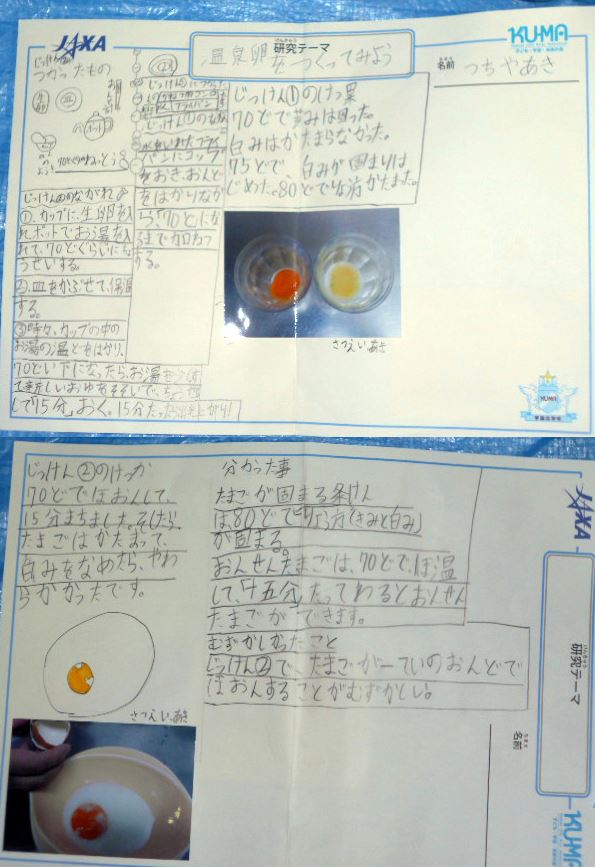 JAXA
けんきゅう
研究テーマ
温泉卵をつくってみよう
KU-MA
なまえ
名前 つちやあき
つかったもの
生卵
皿
ポット
じっけん①のけっ果
70どで黄みは固った。
白みはかたまらなかった。
75どで、白みが固まりは
じめた。80どで両方かたまった。
パンにコップ
をおき、おんど
をはかりなが
ら、「70ど」にな
るまで加ねつ
する。
じっけん②のながれ
①、カップに、生卵を入
れ、ポットでお湯を入
れて、70どぐらいにち
ょうせいする。
②、皿をかぶせて、保温
する。
③時々、カップの中の
お湯の温どをはかり、
70どい下になったら、お湯
て新しいおゆをそそいで、
して「15分」おく。15分たった
さつえい、あき
KUMA
じっけん②のけっか
70どでほおんして、
15分まちました。そしたら、
たまごはかたまって、
白みをなめたら、やわ
らかかったです。
さつえい、あき
分かった事
たまごが固まる条けん
は80どで両方(きみと白み)
が固まる。
おんせんたまごは、70どで、ほ温
して、「十五分」たってわるとおんせん
たまごができます。
むずかしかったこと
じっけん②で、たまごが一ていのおんどで
ほおんすることがむずかしい。
JAXA
けんきゅう
研究テーマ
なまえ
名前
KU-MA